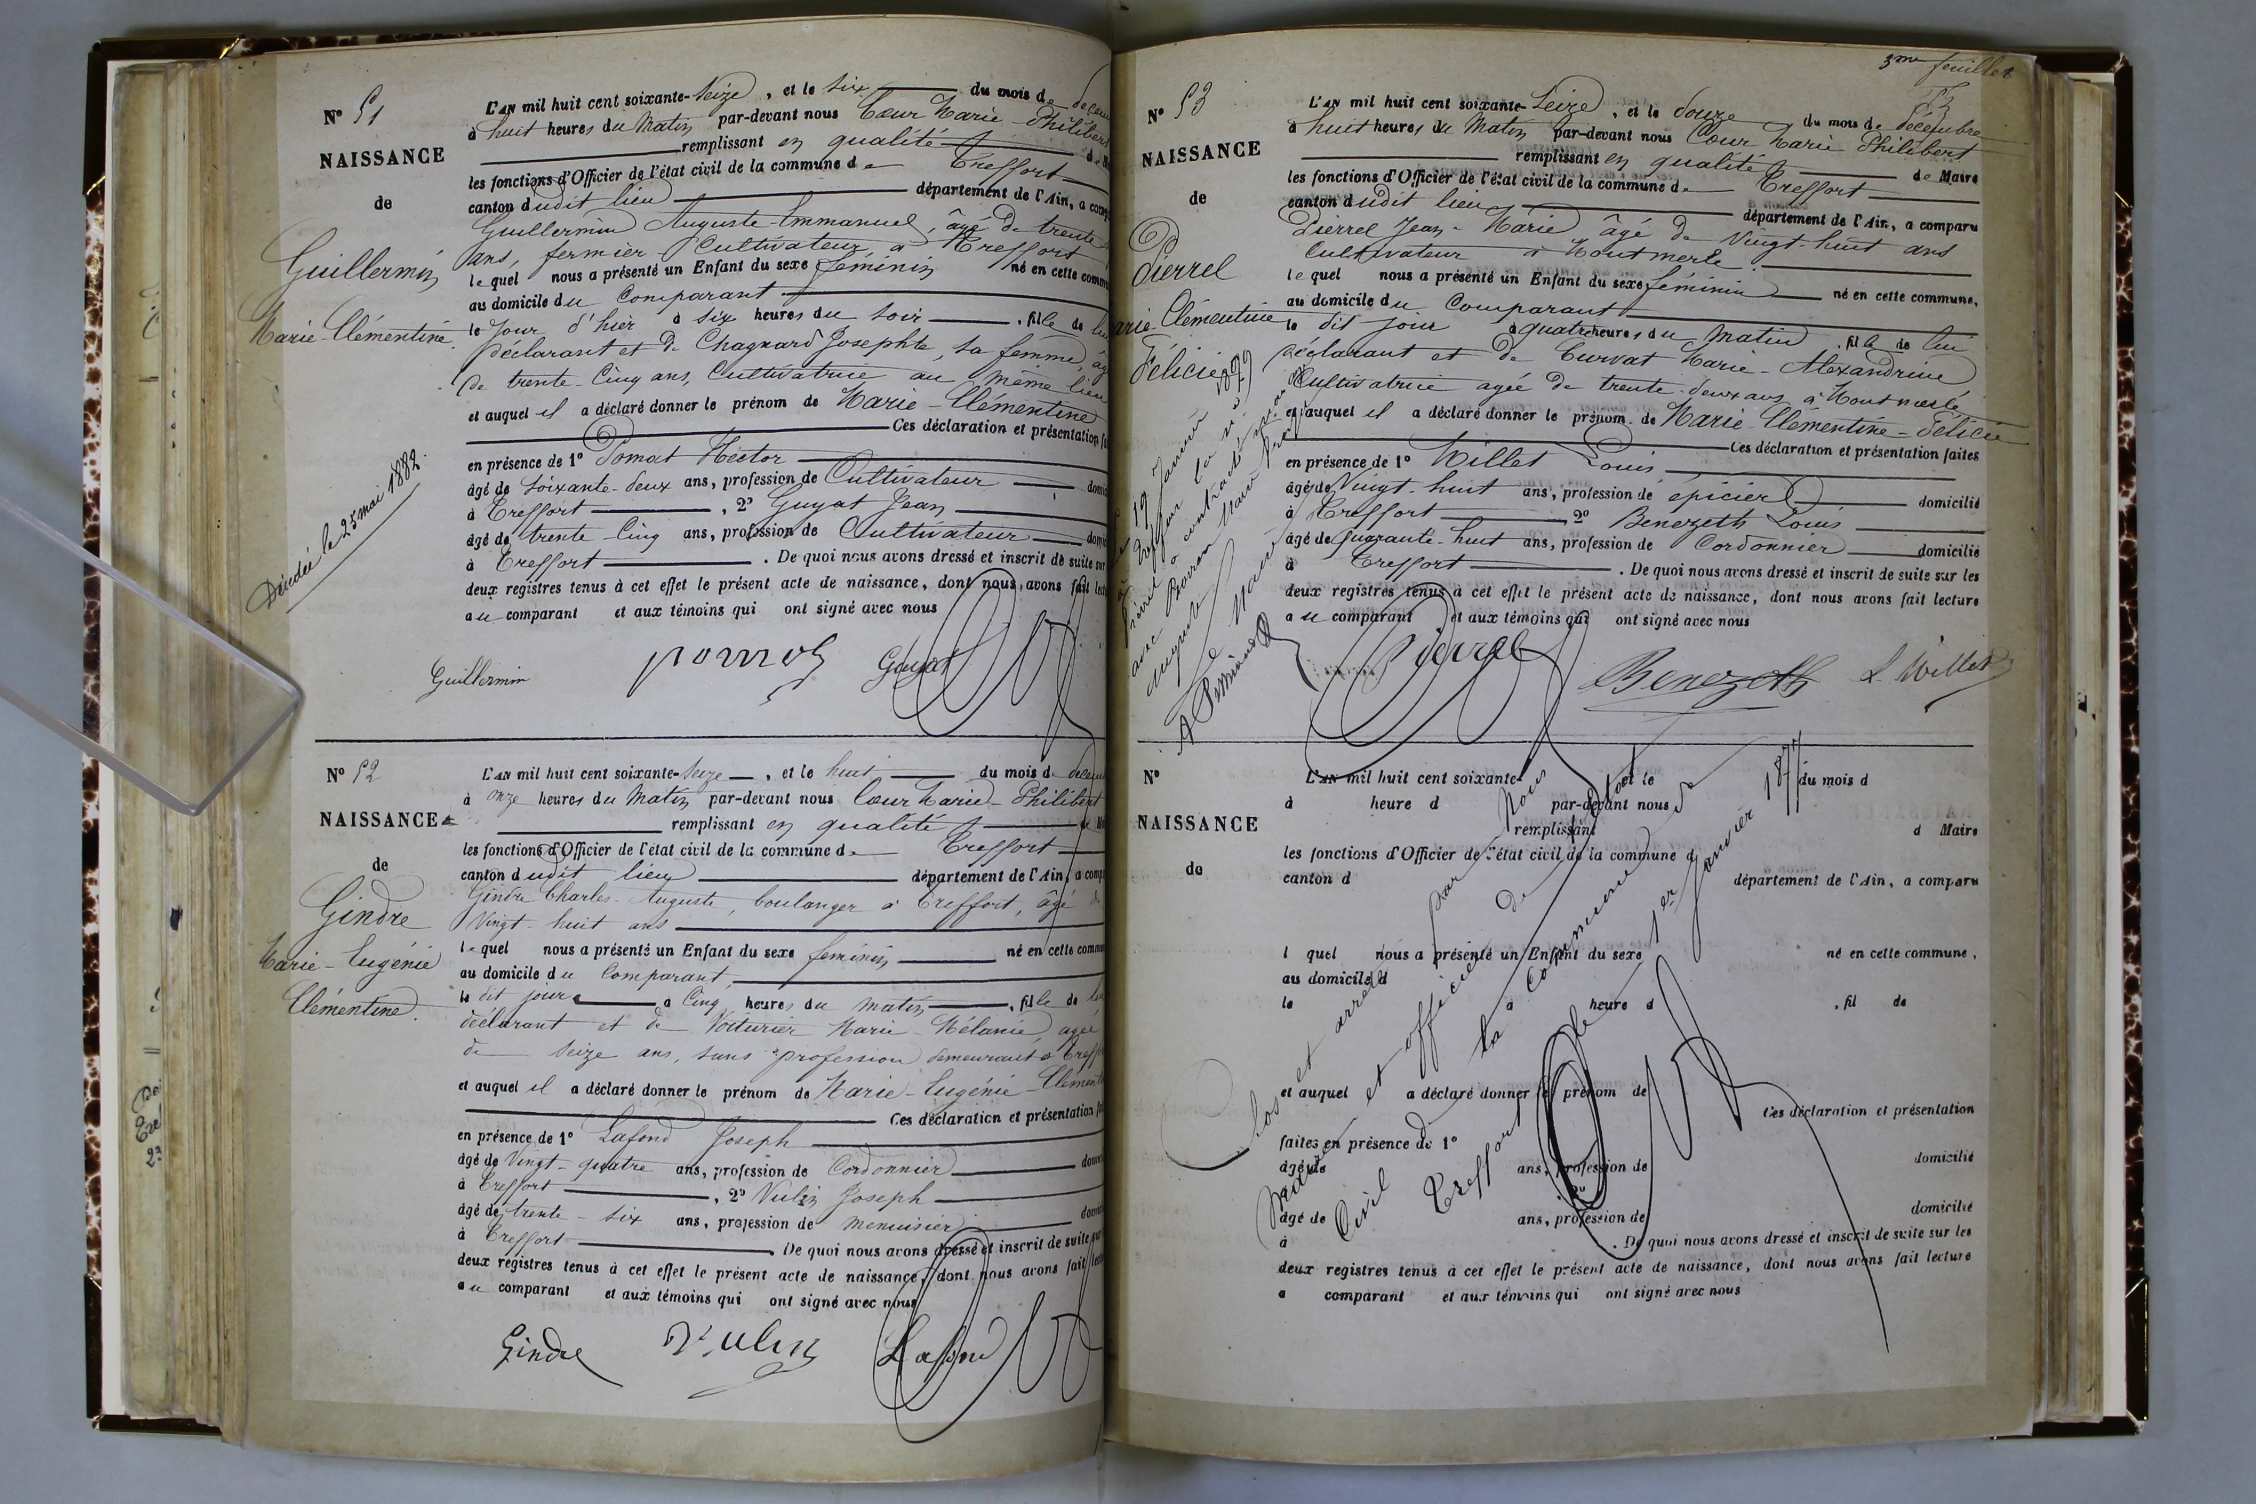 Nº 51
NAISSANCE
de
Guillermin
Marie-Clémentine.
Décédée le 25 mai 1882.
L'AN mil huit cent soixante-seize, et le six du mois de
à huit heures du Matin par-devant nous Cœur Marie-Philibert
remplissant en qualité
les fonctions d'Officier de l'état civil de la commune de Treffort
canton dudit lieu département de l'Ain, a
Guillermin Auguste-Emmanuel, âgé de trente
ans, fermier-Cultivateur à Treffort
lequel nous a présenté un Enfant du sexe féminin né en cette
au domicile du Comparant
le jour d'hier à six heures du soir, fille de
Déclarant et de Chagnard Josephte, sa femme,
de trente-Cinq ans, Cultivatrice au même lieu
et auquel il a déclaré donner le prénom de Marie-Clémentine
Ces déclaration et présentation
en présence de 1º Pomat Hector
âgé de soixante-deux ans, profession de Cultivateur
à Treffort, 2º Guyat Jean
âgé de trente-Cinq ans, profession de Cultivateur
à Treffort. De quoi nous avons dressé et inscrit de suite sur
deux registres tenus à cet effet le présent acte de naissance, dont nous avons fait
au comparant et aux témoins qui ont signé avec nous
Guillermin Guyat
Nº 52
NAISSANCE
de
Gindre
Marie-Eugénie
Clémentine.
L'AN mil huit cent soixante-seize, et le huit du mois d
à onze heures du Matin par-devant nous Cœur Marie-Philibert
remplissant en qualité
les fonctions d'Officier de l'état civil de la commune de Treffort
canton dudit lieu département de l'Ain, a
Gindre Charles-Auguste, boulanger à Treffort, âgé de
Vingt-huit ans
lequel nous a présenté un Enfant du sexe féminin né en cette
au domicile du Comparant,
le dit jour à Cinq heures du matin, fille de
déclarant et de Voiturier Marie-Mélanie, agée
de seize ans, sans profession demeurant à
et auquel il a déclaré donner le prénom de Marie-Eugénie-
Ces déclaration et présentation
en présence de 1º Lafond Joseph
âgé de Vingt-quatre ans, profession de Cordonnier
à Treffort, 2º Vulin Joseph
âgé de trente-six ans, profession de menuisier
à Treffort. De quoi nous avons dressé et inscrit de suite sur
deux registres tenus à cet effet le présent acte de naissance, dont nous avons fait
au comparant et aux témoins qui ont signé avec nous
Gindre Vulin Lafond
3me feuillet
53
Nº 53
NAISSANCE
de
Pierrel
Clémentine
Félicie
L'AN mil huit cent soixante-seize, et le douze du mois de décembre
à huit heures du Matin par-devant nous Cœur Marie Philibert
remplissant en qualité de Maire
les fonctions d'Officier de l'état civil de la commune de Treffort
canton dudit lieu département de l'Ain, a comparu
Pierrel Jean-Marie âgé de Vingt-huit ans
Cultivateur à Montmerle.
lequel nous a présenté un Enfant du sexe féminin né en cette commune,
au domicile du Comparant
le dit jour à quatre heures du matin, fille de lui
déclarant et de Curvat Marie-Alexandrine
Cultivatrice agée de trente-deux ans à Montmerle
et auquel il a déclaré donner le prénom de Marie-Clémentine-Félicie
Ces déclaration et présentation faites
en présence de 1º Millet Louis
âgé de Vingt-huit ans, profession de épicier domicilié
à Treffort 2º Benezeth Louis
âgé de quarante-huit ans, profession de Cordonnier domicilié
à Treffort. De quoi nous avons dressé et inscrit de suite sur les
deux registres tenus à cet effet le présent acte de naissance, dont nous avons fait lecture
au comparant et aux témoins qui ont signé avec nous
Pierrel Benezeth L. Millet
Nº
NAISSANCE
de
L'AN mil huit cent soixante- et le du mois d
à heure d par-devant nous
remplissant d Maire
les fonctions d'Officier de l'état civil de la commune d
canton d département de l'Ain, a comparu
l quel nous a présenté un Enfant du sexe né en cette commune,
au domicile d
le à heure d, fil de
et auquel a déclaré donner le prénom de
Ces déclaration et présentation
faites en présence de 1º
âgé de ans, profession de domicilié
à 2º
âgé de ans, profession de domicilié
à. De quoi nous avons dressé et inscrit de suite sur les
deux registres tenus à cet effet le présent acte de naissance, dont nous avons fait lecture
a comparant et aux témoins qui ont signé avec nous
Clos et arrêté par Nous
Maire et officier de l'état
Civil de la Commune de
Treffort le 1er Janvier 1877